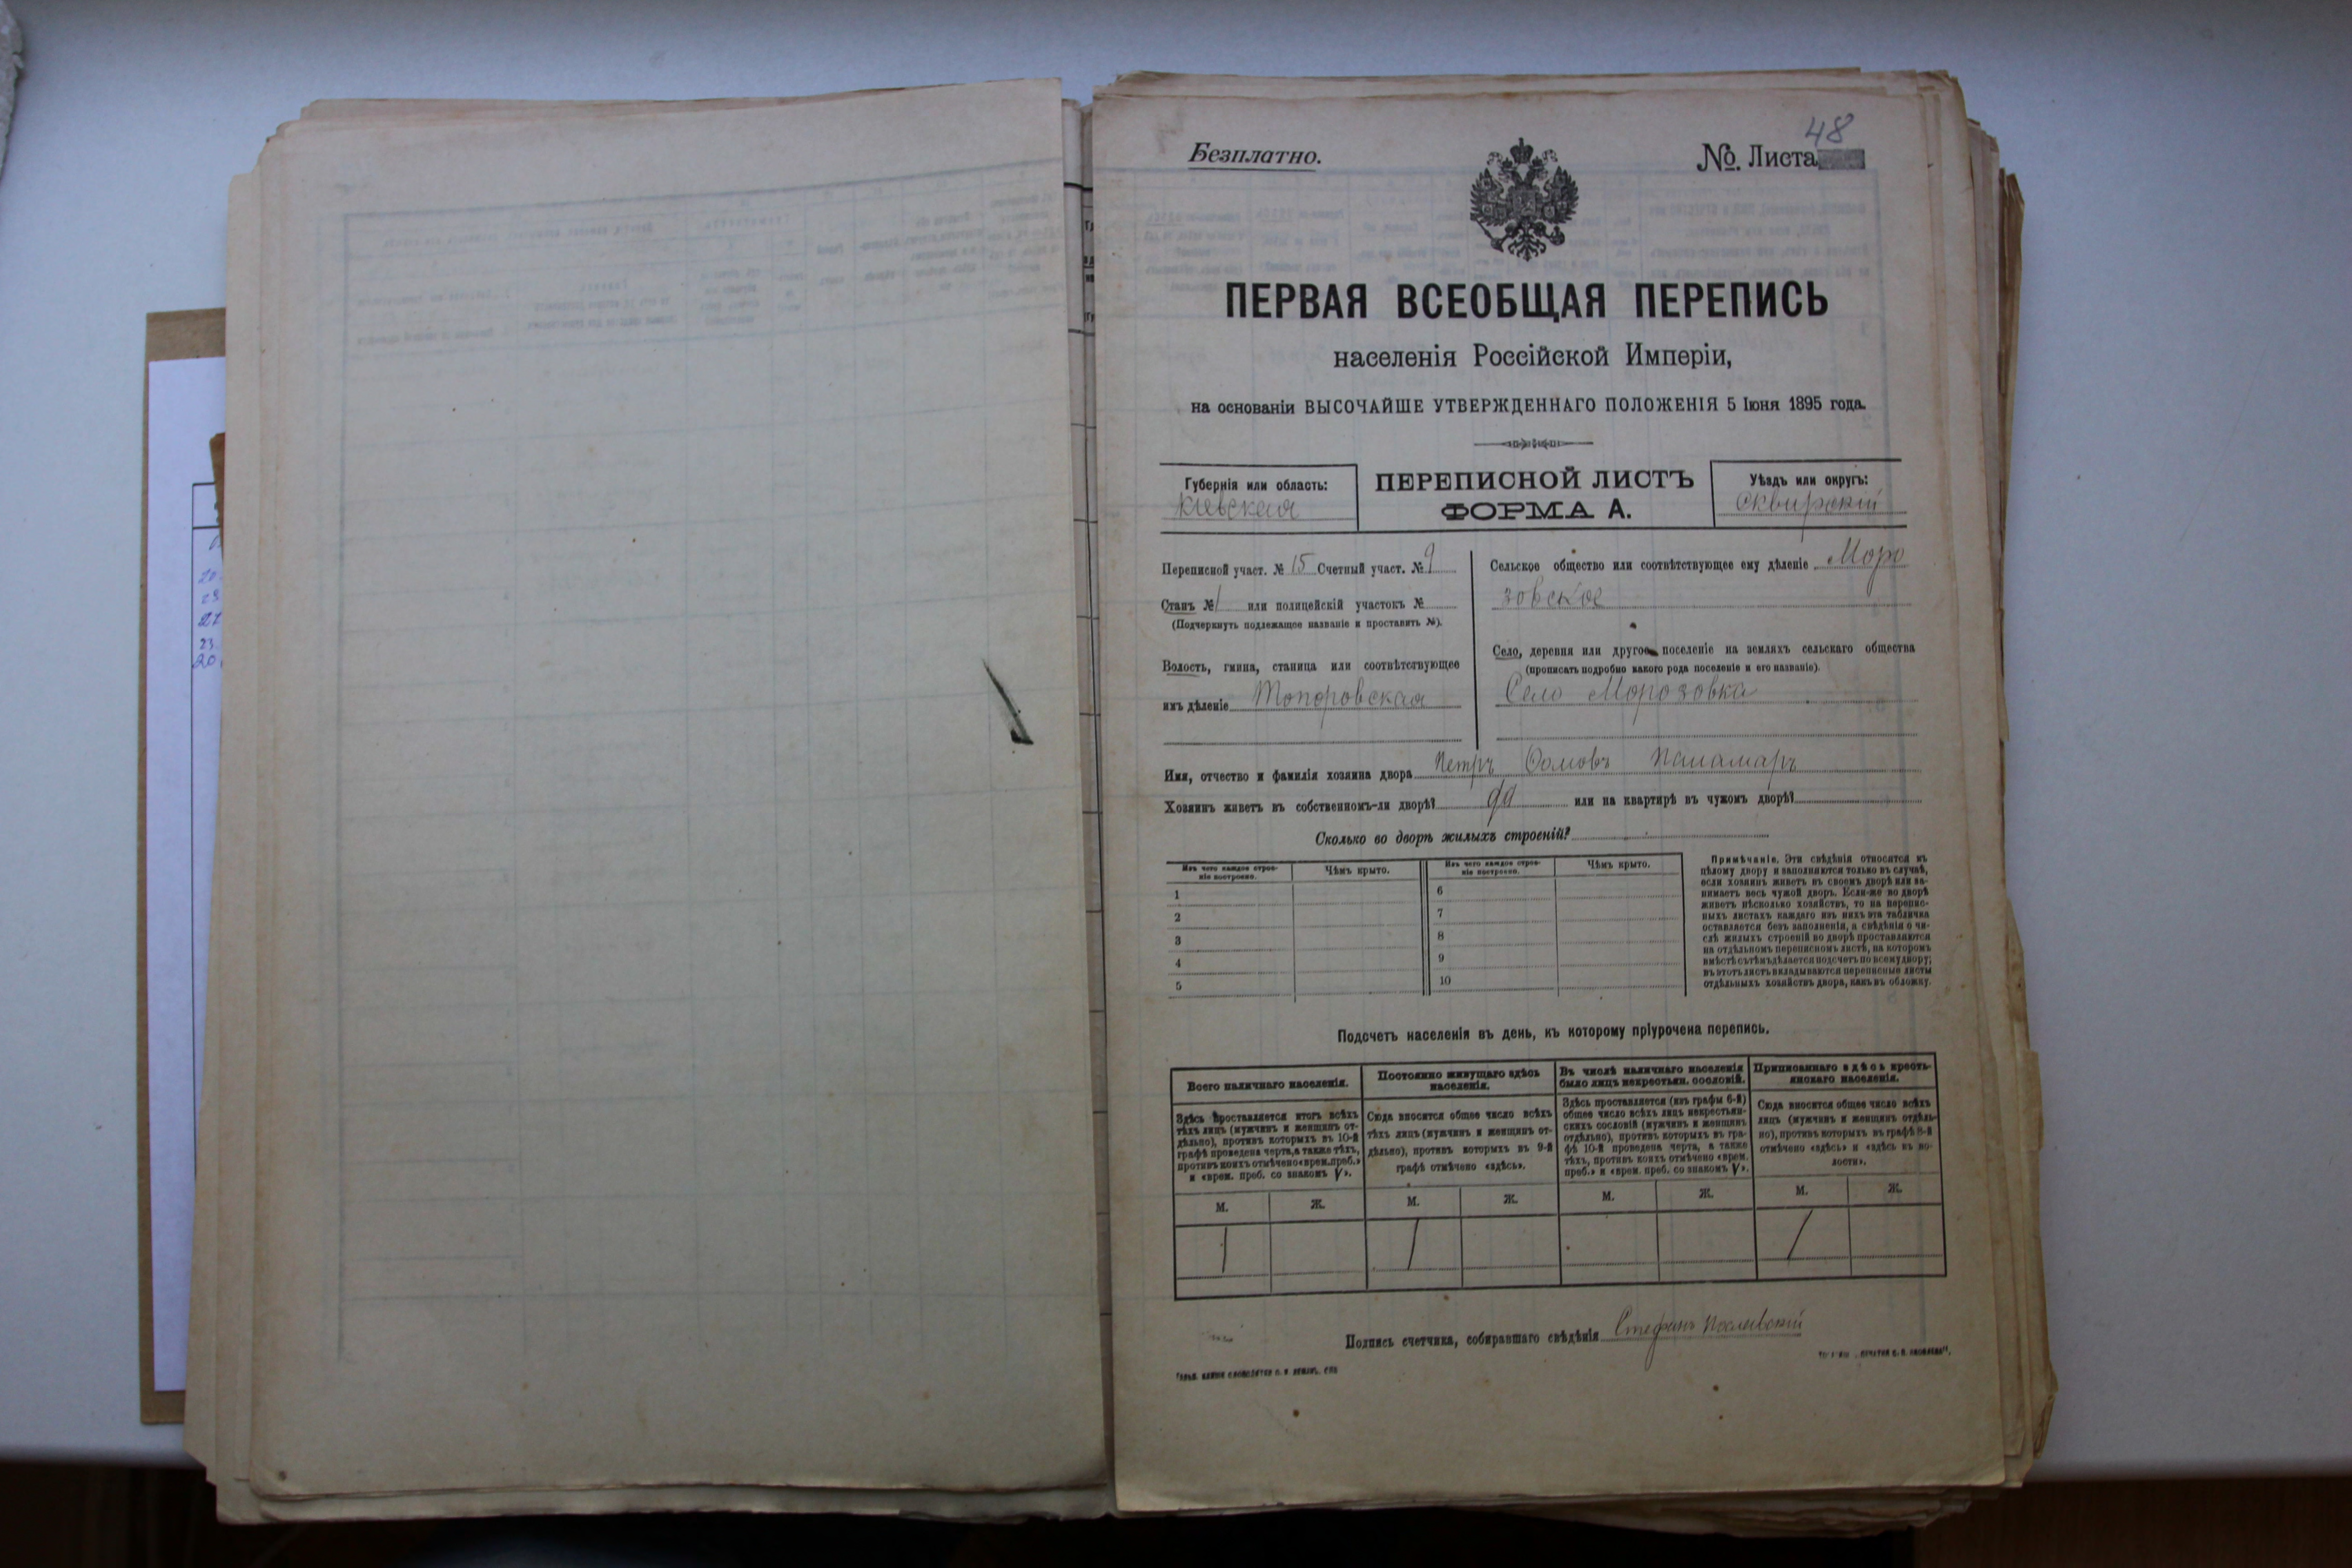 48
Безплатно.
№. Листа
ПЕРВАЯ ВСЕОБЩАЯ ПЕРЕПИСЬ
населенія Россійской Имперіи,
на основаніи ВЫСОЧАЙШЕ УТВЕРЖДЕННАГО ПОЛОЖЕНІЯ 5 Іюня 1895 года.
Губернія или область:
Кіевская
ПЕРЕПИСНОЙ ЛИСТЪ
ФОРМА А.
Уѣздъ или округъ:
Сквирскій
Переписной участ. № 15 Счетный участ. № 9
Станъ № 1 или полицейскій участокъ №
(Подчеркнуть подлежащее названіе и проставить №).
Волость, гмина, станица или соотвѣтствующее
имъ дѣленіе Топоровская
Сельское общество или соотвѣтствующее ему дѣленіе Моро
зовское
Село, деревня или другое поселеніе на земляхъ сельскаго общества
(прописать подробно какого рода поселеніе и его названіе).
Село Морозовка
Имя, отчество и фамилія хозяина двора Петръ Паламаръ
Хозяинъ живетъ въ собственномъ-ли дворѣ? да или на квартирѣ въ чужомъ дворѣ?
Сколько во дворѣ жилыхъ строеній?
Изъ чего каждое строе-
ніе построено.
Чѣмъ крыто.
Изъ чего каждое строе-
ніе построено.
Чѣмъ крыто.
1
2
3
4
5
6
7
8
9
10
Примѣчаніе. Эти свѣдѣнія относятся къ
цѣлому двору и заполняются только въ случаѣ,
если хозяинъ живетъ въ своемъ дворѣ или за-
нимаетъ весь чужой дворъ. Если-же во дворѣ
живетъ нѣсколько хозяйствъ, то на перепис-
ныхъ листахъ каждаго изъ нихъ эта табличка
оставляется безъ заполненія, а свѣдѣнія о чи-
слѣ жилыхъ строеній во дворѣ проставляются
на отдѣльномъ переписномъ листѣ, на которомъ
вмѣстѣ съ тѣмъ дѣлается подсчетъ по всему двору;
въ этотъ листъ вкладываются переписные листы
отдѣльныхъ хозяйствъ двора, какъ въ обложку.
Подсчетъ населенія въ день, къ которому пріурочена перепись.
Всего наличнаго населенія.
Здѣсь проставляется итогъ всѣхъ
тѣхъ лицъ (мужчинъ и женщинъ от-
дѣльно), противъ которыхъ въ 10-й
графѣ проведена черта, а также тѣхъ,
противъ коихъ отмѣчено «врем. преб.»
и «врем. преб. со знакомъ V».
Постоянно живущаго здѣсь
населенія.
Сюда вносится общее число всѣхъ
тѣхъ лицъ (мужчинъ и женщинъ от-
дѣльно), противъ которыхъ въ 9-й
графѣ отмѣчено «здѣсь».
Въ числѣ наличнаго населенія
было лицъ некрестьян. сословій.
Здѣсь проставляется (изъ графы 6-й)
общее число всѣхъ лицъ некрестьян-
скихъ сословій (мужчинъ и женщинъ
отдѣльно), противъ которыхъ въ гра-
фѣ 10-й проведена черта, а также
тѣхъ, противъ коихъ отмѣчено «врем.
преб.» и «врем. преб. со знакомъ V».
Приписаннаго здѣсь кресть-
янскаго населенія.
Сюда вносится общее число всѣхъ
лицъ (мужчинъ и женщинъ отдѣль-
но), противъ которыхъ въ графѣ 8-й
отмѣчено «здѣсь» и «здѣсь въ во-
лости».
М. Ж. М. Ж. М. Ж. М. Ж.
1 1 1
Подпись счетчика, собиравшаго свѣдѣнія Стефанъ